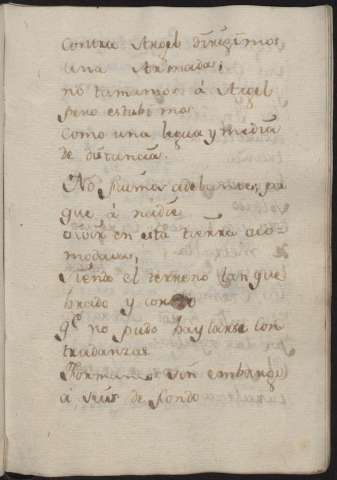 Contra Argel dirigimos
una Armada;
no tomamos á Argel
pero estubimos
como una legua y media
de distancia.
No fuimos adelante,
que á nadie
en esta tierra aco-
modaua,
siendo el terreno tan que
brado y
qᵉ no pudo baylarse con
tradanzas
Formamos sin embargo
á seis de fondo